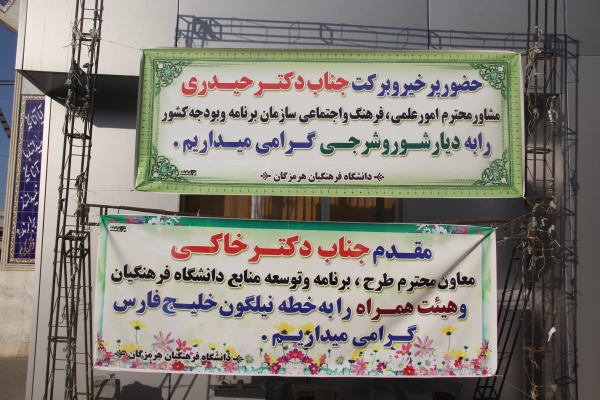 حضور پر خیر و برکت جناب دکتر حیدری
مشاور محترم امور علمی، فرهنگ واجتماعی سازمان برنامه وبودجه کشور
را به دیار شور و شرجی گرامی میداریم.
دانشگاه فرهنگیان هرمزگان
مقدم جناب دکتر خاکی
معاون محترم طرح، برنامه وتوسعه منابع دانشگاه فرهنگیان
وهیئت همراه را به خطه نیلگون خلیج فارس
گرامی میداریم.
دانشگاه فرهنگیان هرمزگان